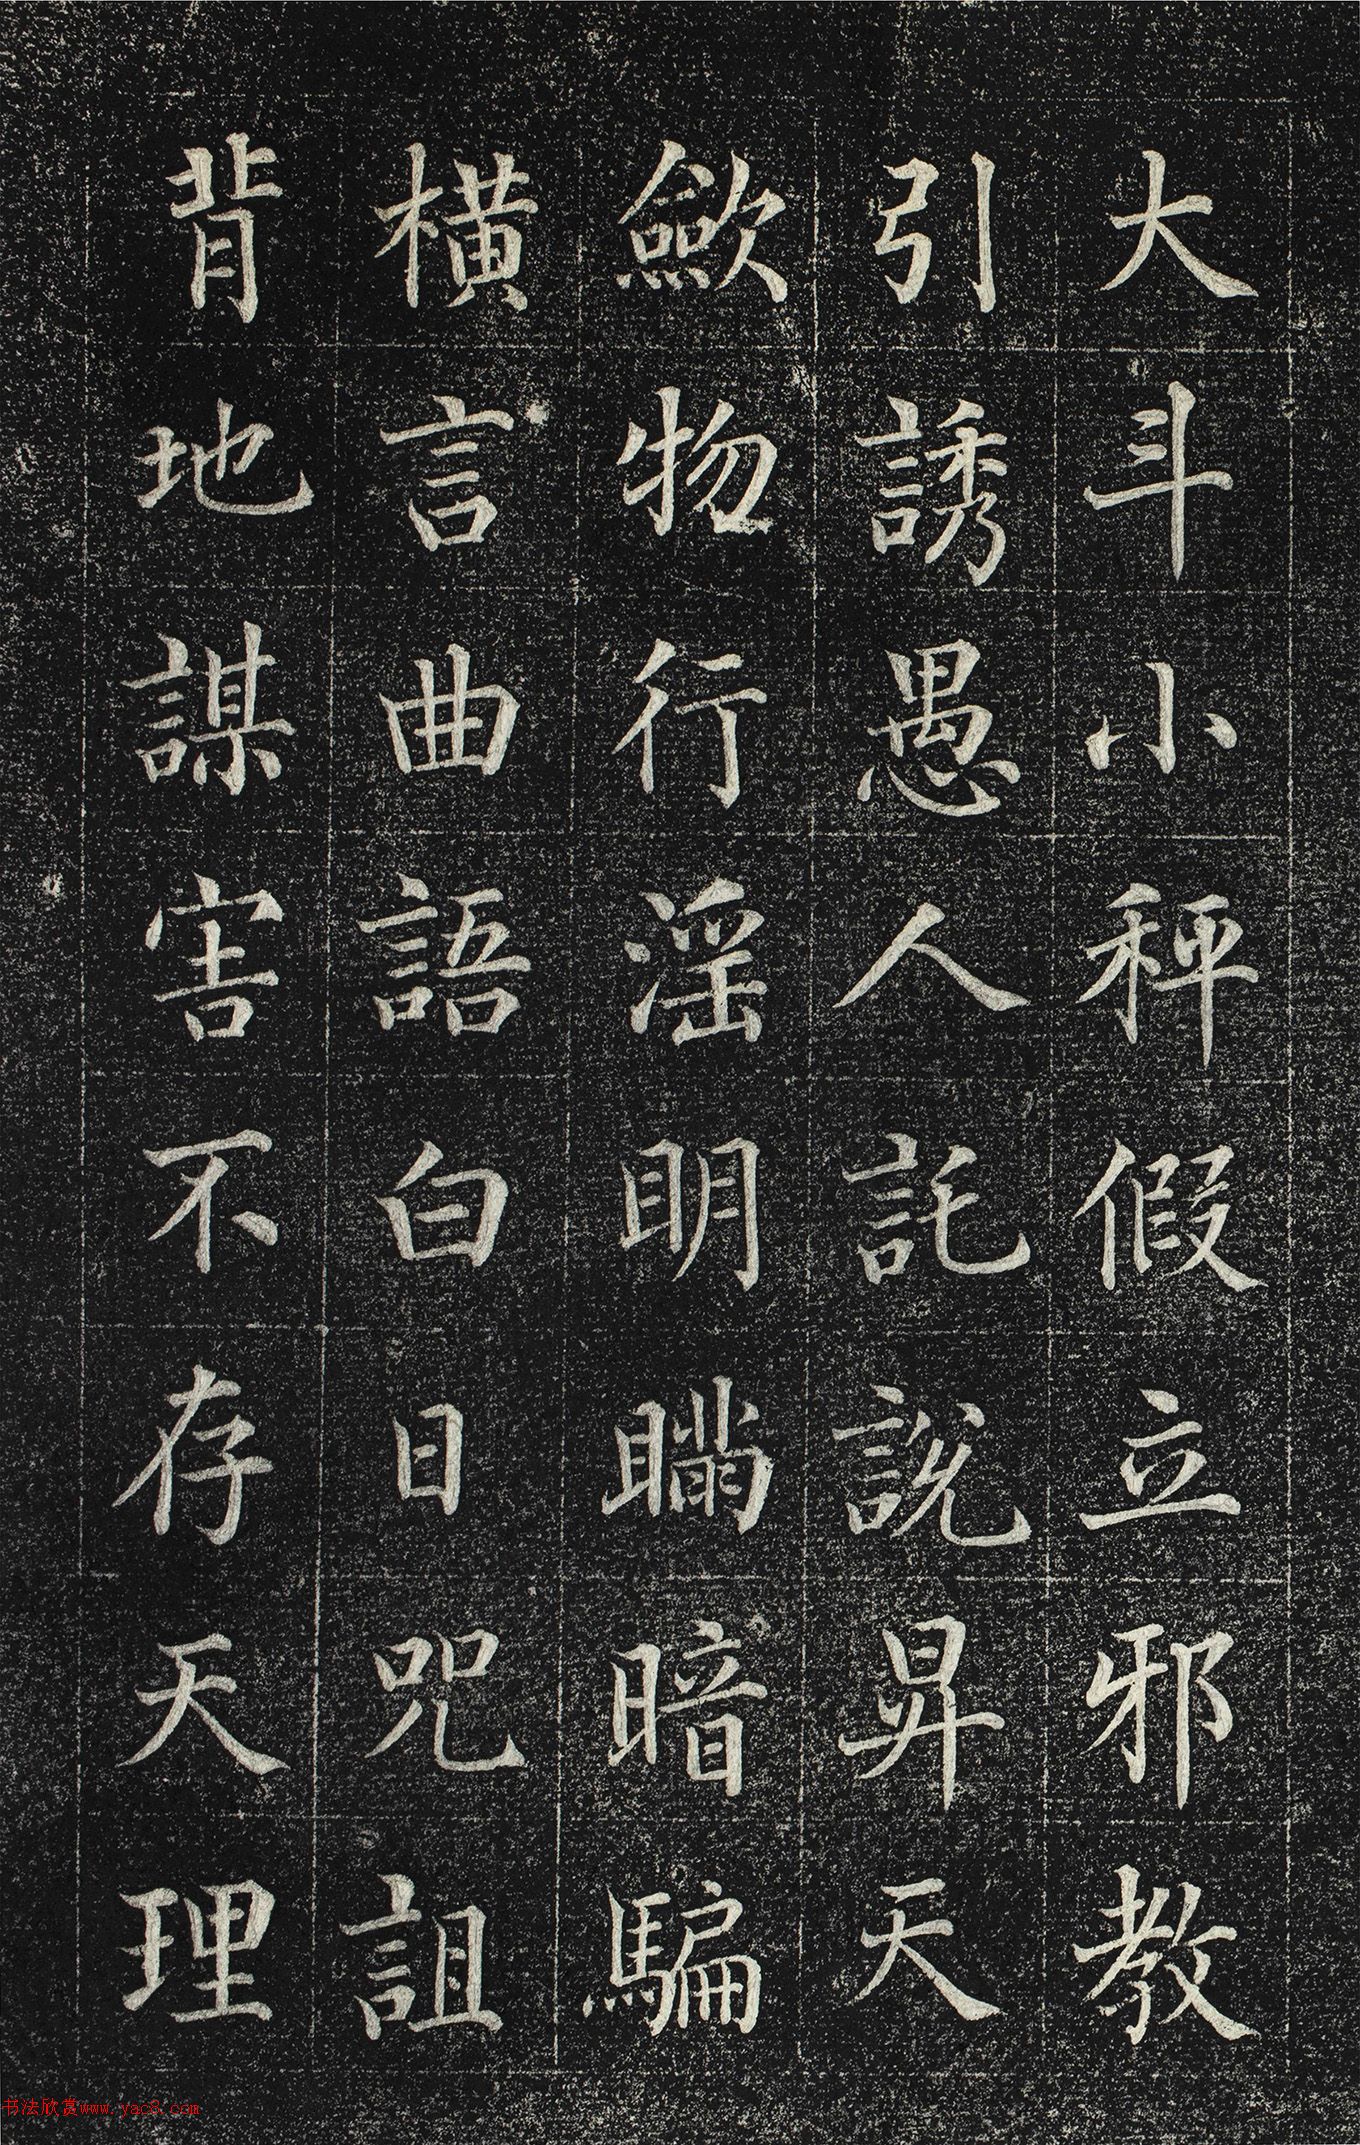 大斗小秤假立邪教
引誘愚人託說昇天
歛物行淫明瞞暗騙
橫言曲語白日咒詛
背地謀害不存天理
书法欣赏www.yac8.com